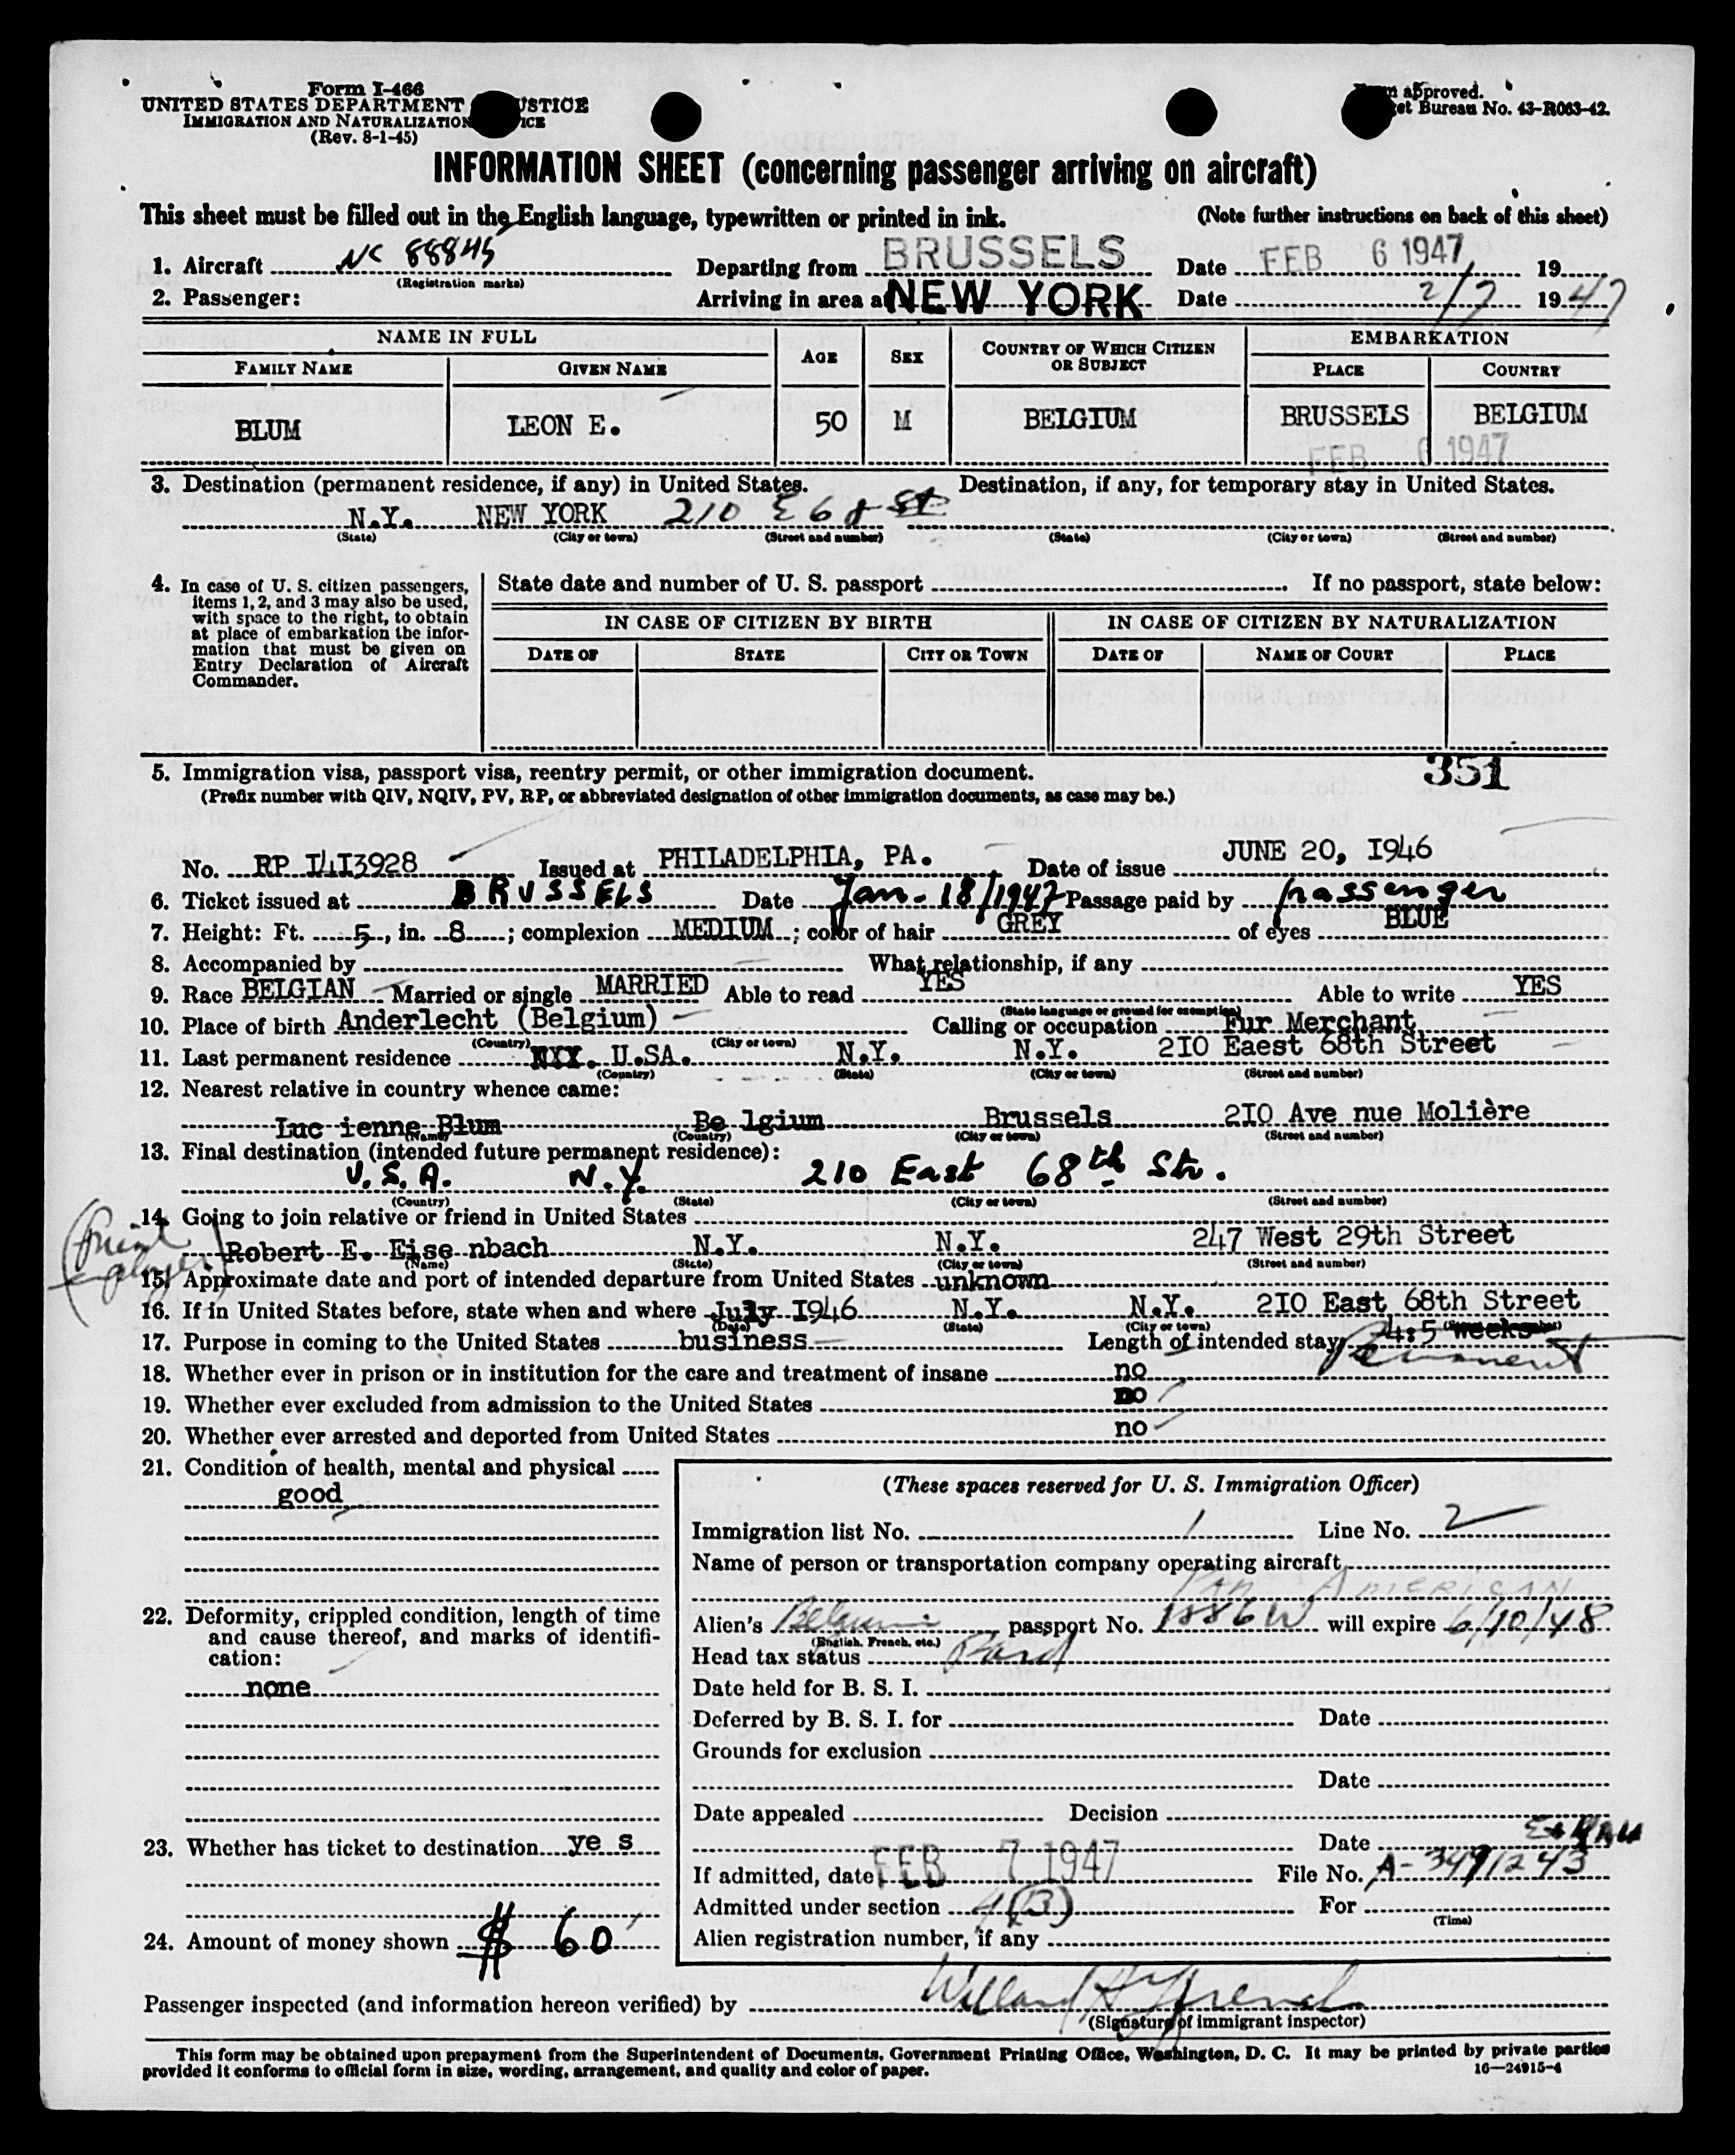 Form I-466
UNITED STATES DEPARTMENT USTICE
IMMIGRATION AND NATURALIZATION ICE
(Rev. 8-1-45)
approved.
et Bureau No. 43-R063-42.
INFORMATION SHEET (concerning passenger arriving on aircraft)
This sheet must be filled out in the English language, typewritten or printed in ink. (Note further instructions on back of this sheet)
1. Aircraft NC 88845 Departing from BRUSSELS Date FEB 6 1947 19
(Registration marks)
2. Passenger: Arriving in area at NEW YORK Date 2/7 1947
NAME IN FULL AGE SEX COUNTRY OF WHICH CITIZEN OR SUBJECT EMBARKATION
FAMILY NAME GIVEN NAME PLACE COUNTRY
BLUM LEON E. 50 M BELGIUM BRUSSELS BELGIUM
FEB 6 1947
3. Destination (permanent residence, if any) in United States. Destination, if any, for temporary stay in United States.
N.Y. NEW YORK 210 E 68 St
(State) (City or town) (Street and number) (State) (City or town) (Street and number)
4. In case of U. S. citizen passengers, items 1, 2, and 3 may also be used, with space to the right, to obtain at place of embarkation the information that must be given on Entry Declaration of Aircraft Commander.
State date and number of U. S. passport If no passport, state below:
IN CASE OF CITIZEN BY BIRTH IN CASE OF CITIZEN BY NATURALIZATION
DATE OF STATE CITY OR TOWN DATE OF NAME OF COURT PLACE
351
5. Immigration visa, passport visa, reentry permit, or other immigration document.
(Prefix number with QIV, NQIV, PV, RP, or abbreviated designation of other immigration documents, as case may be.)
No. RP I4I3928 Issued at PHILADELPHIA, PA. Date of issue JUNE 20, I946
6. Ticket issued at BRUSSELS Date Jan. 18/1947 Passage paid by passenger
7. Height: Ft. 5, in. 8; complexion MEDIUM; color of hair GREY of eyes BLUE
8. Accompanied by What relationship, if any
9. Race BELGIAN Married or single MARRIED Able to read YES Able to write YES
(State language or ground for exemption)
10. Place of birth Anderlecht (Belgium) Calling or occupation Fur Merchant
(Country) (City or town)
11. Last permanent residence U.SA. N.Y. N.Y. 2I0 Eaest 68th Street
(Country) (State) (City or town) (Street and number)
12. Nearest relative in country whence came:
Luc ienne Blum Be lgium Brussels 2I0 Ave nue Molière
(Name) (Country) (City or town) (Street and number)
13. Final destination (intended future permanent residence):
U.S.A. N.Y. 210 East 68th Str.
(Country) (State) (City or town) (Street and number)
14. Going to join relative or friend in United States
(friend employer)
Robert E. Eise nbach N.Y. N.Y. 247 West 29th Street
(Name) (State) (City or town) (Street and number)
15. Approximate date and port of intended departure from United States unknown
16. If in United States before, state when and where July I946 N.Y. N.Y. 2I0 East 68th Street
(Date) (State) (City or town)
17. Purpose in coming to the United States business Length of intended stay 4:5 weeks
Permanent
18. Whether ever in prison or in institution for the care and treatment of insane no
19. Whether ever excluded from admission to the United States no
20. Whether ever arrested and deported from United States no
21. Condition of health, mental and physical
good
22. Deformity, crippled condition, length of time and cause thereof, and marks of identification:
none
23. Whether has ticket to destination ye s
24. Amount of money shown $ 60
(These spaces reserved for U. S. Immigration Officer)
Immigration list No. 1 Line No. 2
Name of person or transportation company operating aircraft
PAN AMERICAN
Alien's Belgium passport No. 1886W will expire 6/10/48
(English, French, etc.)
Head tax status Paid
Date held for B. S. I.
Deferred by B. S. I. for Date
Grounds for exclusion
Date
Date appealed Decision
Date
If admitted, date FEB 7 1947 File No. A-3491243
Admitted under section 4(B) For
(Time)
Alien registration number, if any
Passenger inspected (and information hereon verified) by
(Signature of immigrant inspector)
This form may be obtained upon prepayment from the Superintendent of Documents, Government Printing Office, Washington, D. C. It may be printed by private parties
provided it conforms to official form in size, wording, arrangement, and quality and color of paper. 16—24915-4